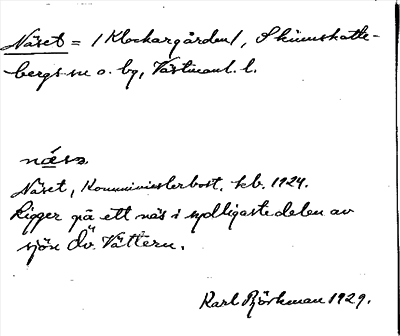 Näset = /Klockargården/, Skinnskatte-
bergs sn o. bg, Västmanl. l.
näsə
Näset, Komministerbost. kb. 1924.
Ligger på ett näs i sydligaste delen av
sjön Öv. Vättern.
Karl Björkman 1929.